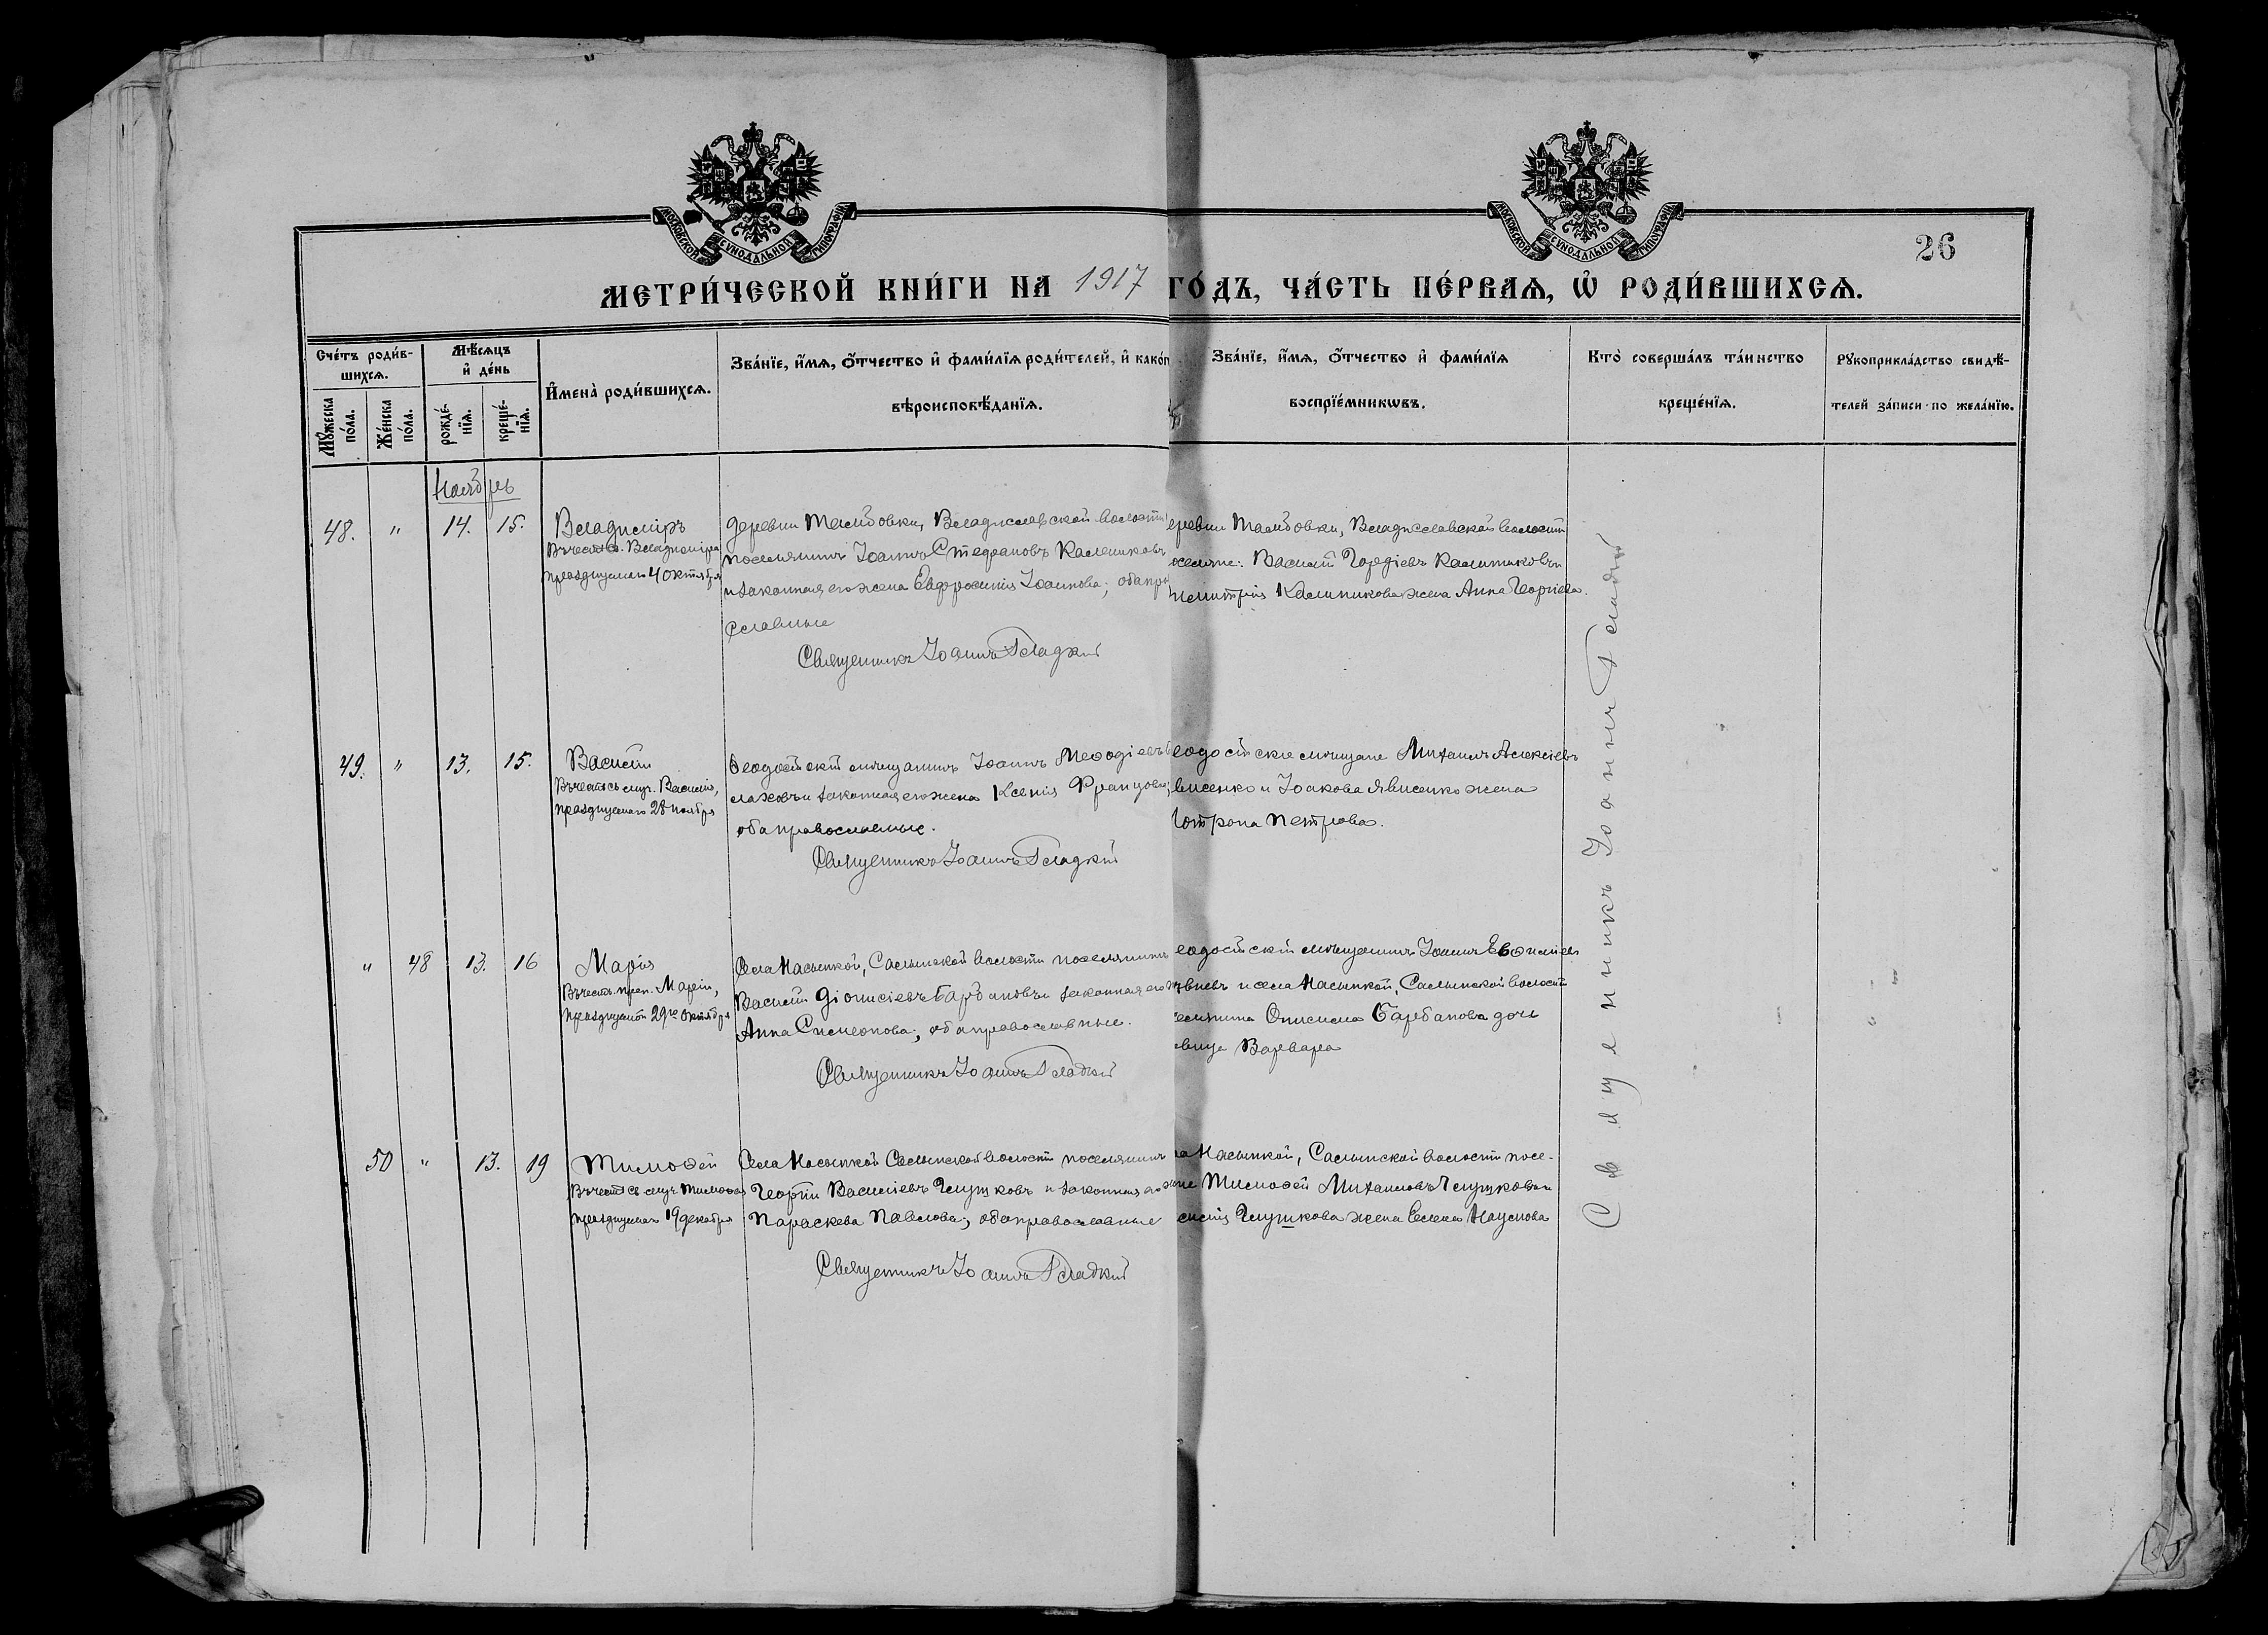 МОСКОВСКОЙ СѴНОДАЛЬНОЙ ТИПОГРАФІИ
МОСКОВСКОЙ СѴНОДАЛЬНОЙ ТИПОГРАФІИ
26
МЕТРИ́ЧЕСКОЙ КНИ́ГИ НА 1917 ГО́ДЪ, ЧА́СТЬ ПЕ́РВАѦ, Ѡ҆ РОДИ́ВШИХСѦ.
Сче́тъ роди́в-
шихсѧ.
Мѣ́сѧцъ
и҆ де́нь
Мꙋ́жеска
по́ла.
Же́нска
по́ла.
рожде́-
нїѧ.
креще́-
нїѧ.
И҆мена̀ роди́вшихсѧ.
Зва́нїе, и҆́мѧ, ѻ҆́тчество и҆ фами́лїѧ роди́телей, и҆ како́г
вѣроисповѣ́данїѧ.
Зва́нїе, и҆́мѧ, ѻ҆́тчество и҆ фами́лїѧ
воспрїе́мникѡвъ.
Кто̀ соверша́лъ та́инство
креще́нїѧ.
Рꙋкоприкла́дство свидѣ́-
телей за́писи по жела́нїю.
Ноябрь
48. " 14. 15. Владиміръ
Въ честь св. Владиміра
празднуемаго 4 октября
деревни Тамбовки, Владиславской волости
поселянинъ Іоаннъ Стефановъ Калениковъ
и законная его жена Евфросинія Іоаннова; оба пра
славные
Священникъ Іоаннъ Гладкій
еревни Тамбовки, Владиславской волости
оселяне: Василій Гордіевъ Калениковъ и
Калиникова жена Анна Георгіева.
49. " 13. 15. Василій
Въ честь св. муч. Василія,
празднуемаго 28 ноября
Ѳеодосійскій мѣщанинъ Іоаннъ Меѳодіевъ
и законная его жена Ксенія
оба православные.
Священникъ Іоаннъ Гладкій
еодосійскіе мѣщане Михаилъ Алексіевъ
и Іоакова Явисенко жена
Петрова.
" 48 13. 16 Марія
Въ честь преп. Маріи,
празднуемой 29го октября
Села Насыпкой, Салынской волости поселянинъ
Василій Діонисіевъ Барбановъ и законная его
Анна Симеонова; оба православные.
Священникъ Іоаннъ Гладкій
еодосійскій мѣщанинъ Іоаннъ
и села Насыпкой, Салынской волости
Онисима Барбанова дочь
евица Варвара
50 " 13. 19 Тимоѳей
Въ честь св. муч. Тимоѳея
празднуемаго 19 декабря
Села Насыпкой Салынской волости поселянинъ
Георгій Василіевъ Глушковъ и законная его
Параскева Павлова; оба православные
Священникъ Іоаннъ Гладкій
ла Насыпкой, Салынской волости посе-
яне Тимоѳей Михаиловъ Глушковъ и
Глушкова жена Елена Наумова
Священникъ Іоаннъ Гладкій